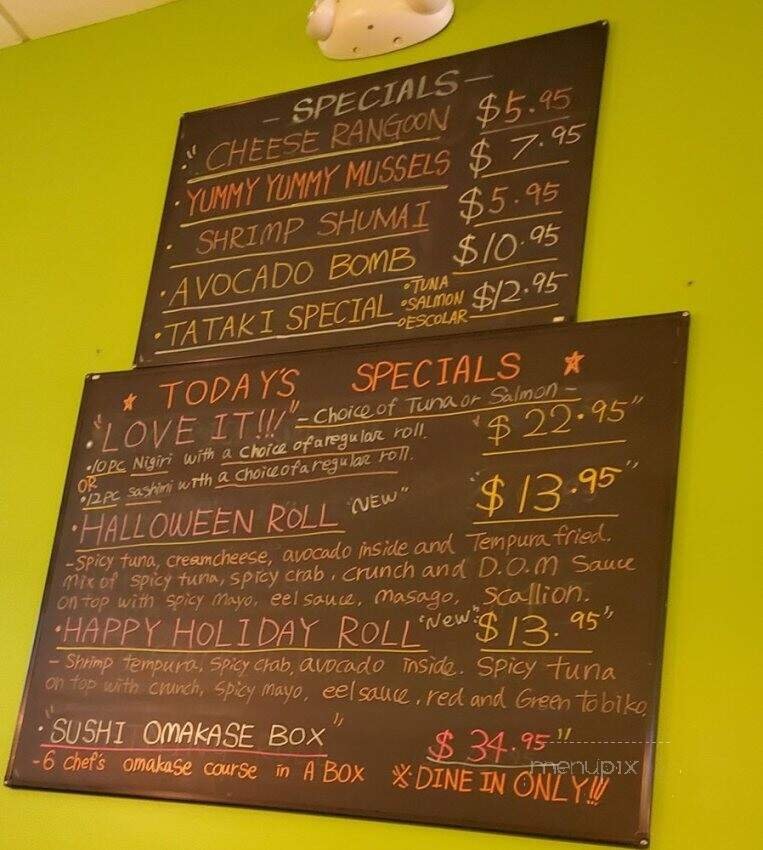 - SPECIALS -
"CHEESE RANGOON $5.95
• YUMMY YUMMY MUSSELS $7.95
• SHRIMP SHUMAI $5.95
• AVOCADO BOMB $10.95
• TATAKI SPECIAL •TUNA •SALMON •ESCOLAR $12.95
★ TODAY'S SPECIALS ★
• "LOVE IT!!!" - Choice of Tuna or Salmon - "$22.95"
•10PC Nigiri with a choice of a regular roll.
OR
•12PC Sashimi with a choice of a regular roll.
• HALLOWEEN ROLL "NEW" "$13.95"
- Spicy tuna, creamcheese, avocado inside and Tempura fried.
Mix of spicy tuna, spicy crab, crunch and D.O.M Sauce
on top with spicy mayo, eel sauce, masago, scallion.
• HAPPY HOLIDAY ROLL "New" "$13.95"
- Shrimp tempura, spicy crab, avocado inside. Spicy tuna
on top with crunch, spicy mayo, eel sauce, red and Green tobiko
• "SUSHI OMAKASE BOX" $34.95"
- 6 chef's omakase course in A BOX ※DINE IN ONLY!!!
menupix